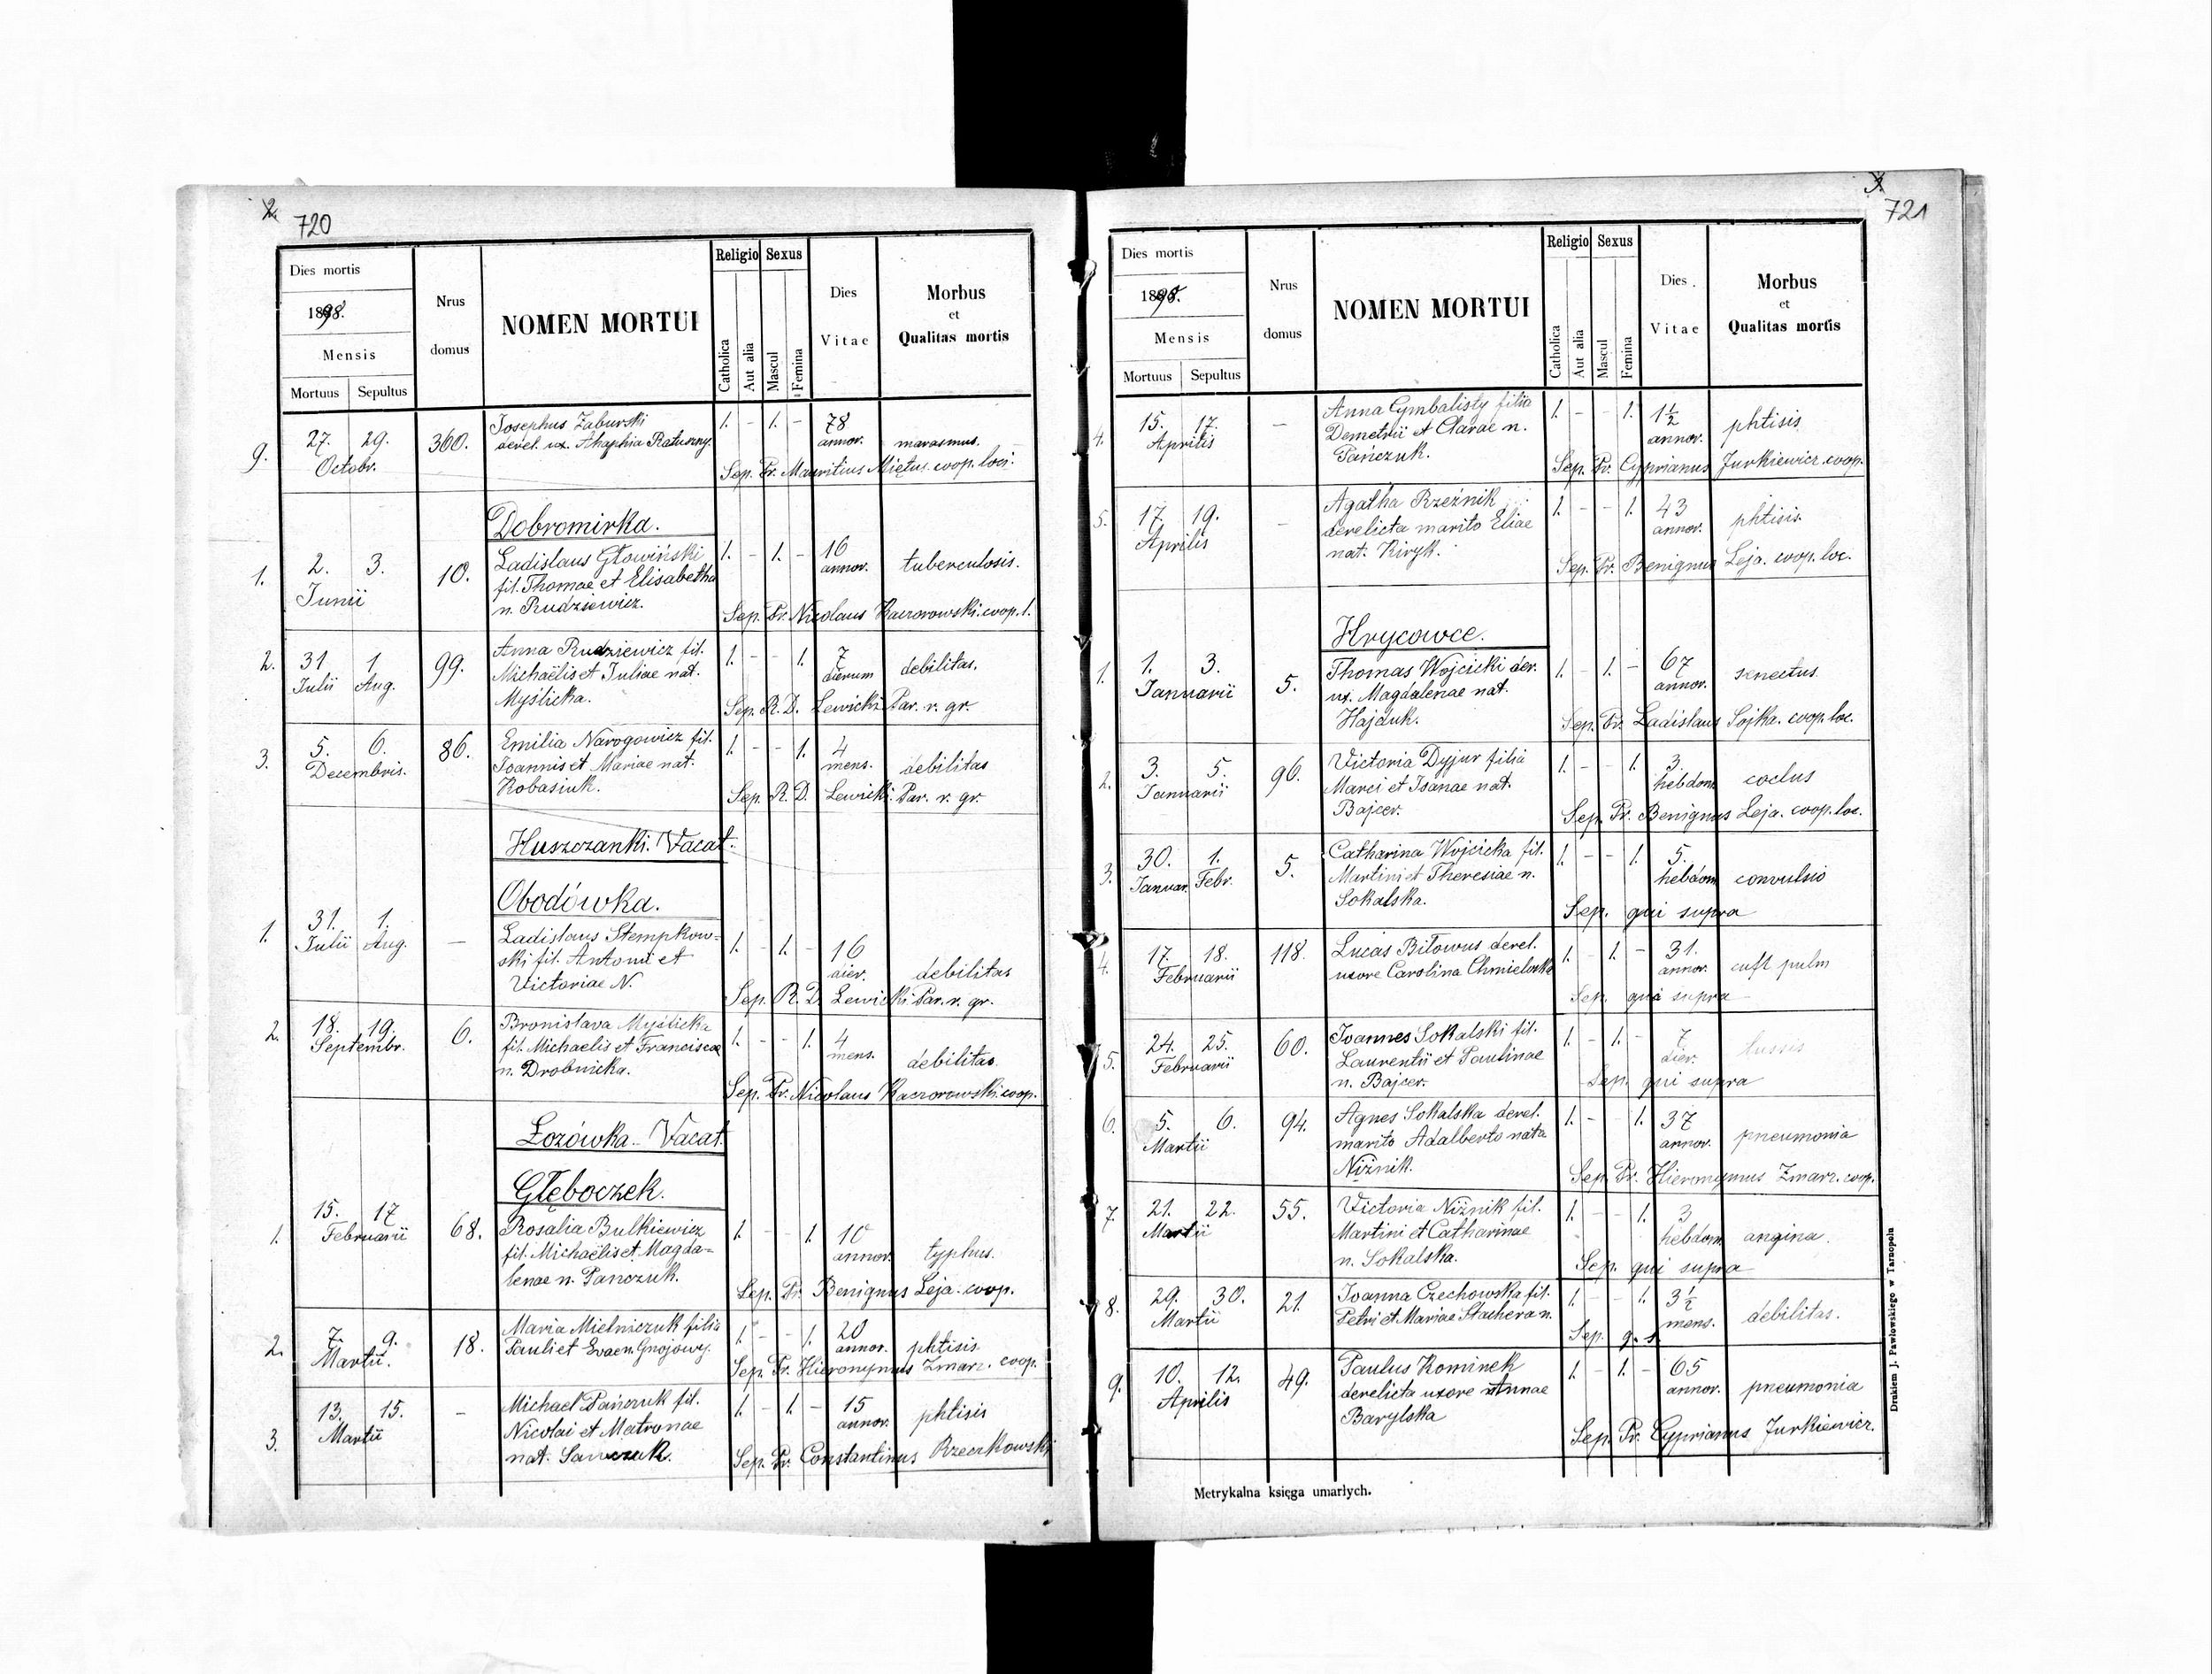 2.
720
Dies mortis
1898.
Mensis
Mortuus Sepultus
Nrus domus
NOMEN MORTUI
Religio
Catholica
Aut alia
Sexus
Mascul
Femina
Dies Vitae
Morbus
et
Qualitas mortis
9. 27. 29. 360. Josephus Zaburski 1. - 1. - 78
Octobr. derel. ux. Ahaphia Ratuszny. annor. marasmus.
Sep. Fr. Mauritius Miętus. coop. loci.
Dobromirka.
1. 2. 3. 10. Ladislaus Głowiński 1. - 1. - 16
Junii fil. Thomae et Elisabetha annor. tuberculosis.
n. Rudziewicz.
Sep. Fr. Nicolaus Kaczorowski. coop. l.
2. 31 1. 99. Anna Rudziewicz fil. 1. - - 1. 7
Julii Aug. Michaëlis et Juliae nat. dierum debilitas.
Myślicka.
Sep. R. D. Lewicki Par. r. gr.
3. 5. 6. 86. Emilia Narogowicz fil. 1. - - 1. 4
Decembris. Joannis et Mariae nat. mens. debilitas
Kobasiuk.
Sep. R. D. Lewicki. Par. r. gr.
Huszczanki. Vacat.
Obodówka.
1. 31. 1. — Ladislaus Stempkow- 1. - 1. - 16
Julii Aug. ski fil. Antoni et dier. debilitas
Victoriae N.
Sep. R. D. Lewicki Par. r. gr.
2. 18. 19. 6. Bronislava Myślicka 1. - - 1. 4
Septembr. fil. Michaelis et Franciscae mens. debilitas.
n. Drobnicka.
Sep. Fr. Nicolaus Kaczorowski. coop.
Łozówka. Vacat.
Głęboczek.
1. 15. 17 68. Rosalia Bulkiewicz 1. - - 1. 10
Februarii fil. Michaëlis et Magda- annor. typhus.
lenae n. Panczuk.
Sep. Fr. Benignus Leja. coop.
2. 7. 9. 18. Maria Mielniczuk filia 1. - - 1. 20
Martii. Pauli et Evae n. Gnojowy. annor. phtisis
Sep. Fr. Hieronymus Zmarz. coop.
3. 13. 15. - Michael Pańczuk fil. 1. - 1. - 15
Martii Nicolai et Matronae annor. phtisis
nat. Sawczuk.
Sep. Fr. Constantinus Rzeczkowski
3.
721
Dies mortis
1898.
Mensis
Mortuus Sepultus
Nrus domus
NOMEN MORTUI
Religio
Catholica
Aut alia
Sexus
Mascul
Femina
Dies Vitae
Morbus
et
Qualitas mortis
4. 15. 17. - Anna Cymbalisty filia 1. - - 1. 1½
Aprilis Demetrii et Clarae n. annor. phtisis
Pańczuk.
Sep. Fr. Cyprianus Jurkiewicz. coop.
5. 17. 19. - Agatha Rzeźnik 1. - - 1. 43
Aprilis derelicta marito Eliae annor. phtisis.
nat. Kiryk.
Sep. Fr. Benignus Leja. coop. loc.
Hrycowce.
1. 1. 3. 5. Thomas Wojcicki der. 1. - 1. - 67
Januarii ux. Magdalenae nat. annor. senectus
Hajduk.
Sep. Fr. Ladislaus Sojka. coop. loc.
2. 3. 5. 96. Victoria Dyjur filia 1. - - 1. 3.
Januarii Marci et Joanae nat. hebdom
Bajcer.
Sep. Fr. Benignus Leja. coop. loc.
3. 30. 1. 5. Catharina Wojcicka fil. 1. - - 1. 5.
Januar. Febr. Martini et Theresiae n. hebdom convulsio
Sokalska.
Sep. qui supra
4. 17. 18. 118. Lucas Biłowus derel. 1. - 1. - 31.
Februarii uxore Carolina Chmielowska annor. pulm
Sep. qui supra
5. 24. 25. 60. Joannes Sokalski fil. 1. - 1. - 7
Februarii Laurentii et Paulinae dier. tussis
n. Bajcer.
Sep. qui supra
6. 5. 6. 94. Agnes Sokalska derel. 1. - - 1. 37
Martii marito Adalberto nata annor. pneumonia
Niżnik.
Sep. Fr. Hieronymus Zmarz. coop.
7. 21. 22. 55. Victoria Niżnik fil. 1. - - 1. 3
Martii Martini et Catharinae hebdom angina.
n. Sokalska.
Sep. qui supra
8. 29. 30. 21. Joanna Czechowska fil. 1. - - 1. 3½
Martii Petri et Mariae Stachera n. mens. debilitas.
Sep. q. s.
9. 10. 12. 49. Paulus Kominek 1. - 1. - 65
Aprilis derelicta uxore Annae annor. pneumonia
Barylska
Sep. Fr. Cyprianus Jurkiewicz.
Metrykalna księga umarłych.
Drukiem J. Pawłowskiego w Tarnopolu